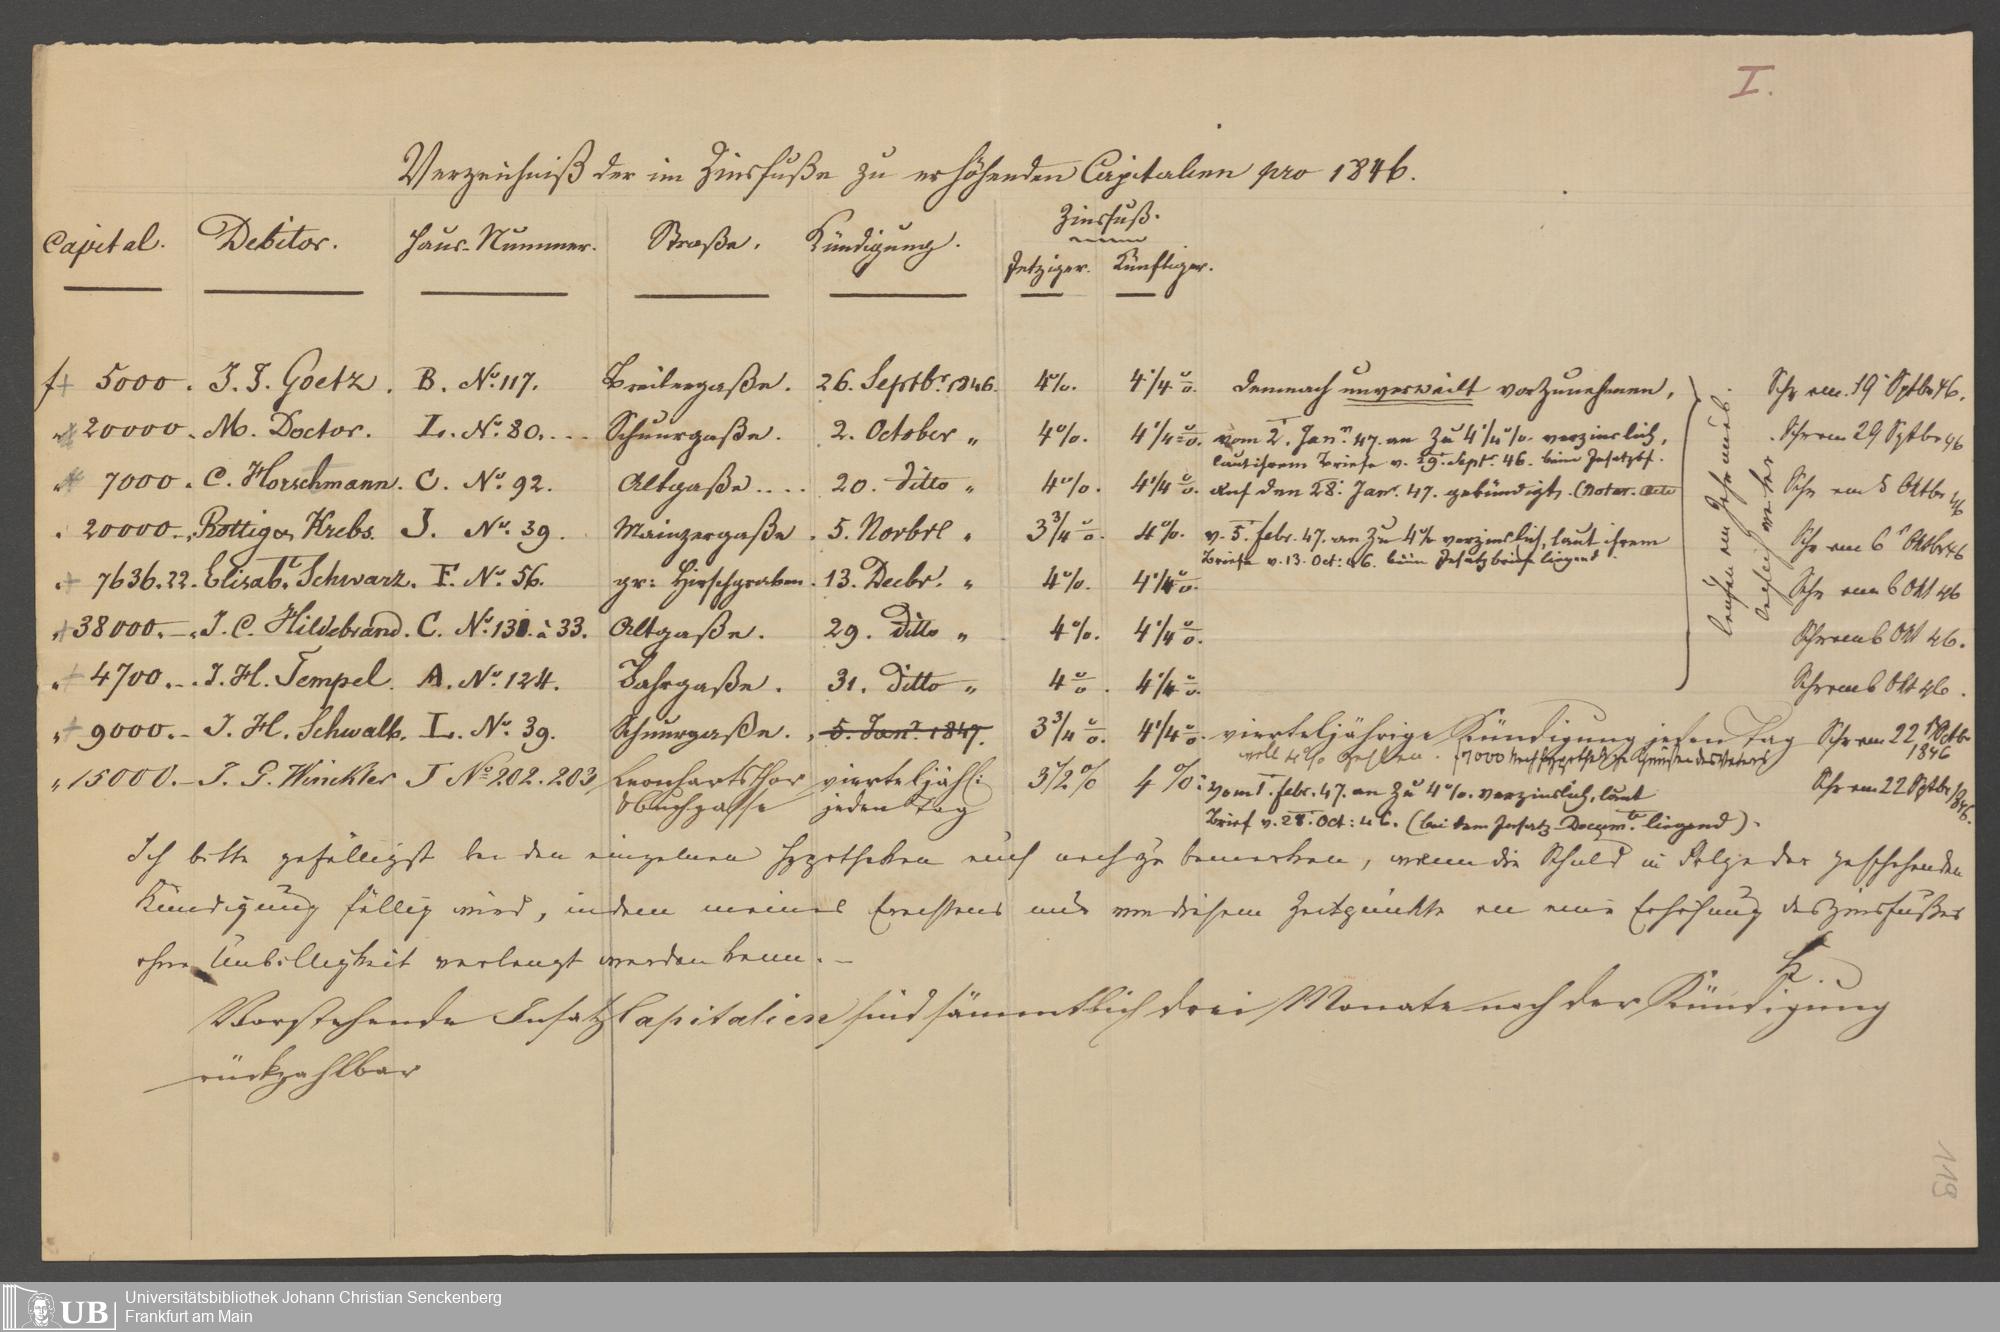 I.
Verzeichniß der im Zinsfuße zu erhöhenden Capitalien pro 1846.
Capital. Debitor. Haus-Nummer. Straße. Kündigung. Zinsfuß.
Jetziger. Künftiger.
f 5000. J. J. Goetz. B. No. 117. Breitegaße. 26. Septbr. 1846. 4%. 4 1/4 %. demnach unverweilt vorzunehmen, Schr am 19 Sptbr 46.
" 20000. M. Doctor. L. No. 80. Schnurgaße. 2. October " 4%. 4 1/4 %. vom 2. Jann. 47. an zu 4 1/4 %. verzinslich, Schr am 29 Sptbr 46
laut ihrem Briefe v. 29. Sept. 46. beim Insatzbf.
" 7000. C. Horschmann. C. No. 92. Altgaße 20. ditto " 4%. 4 1/4 %. auf den 28. Jan. 47. gekündigt. (Notar. Schr am 5 Oktbr 46
" 20000. Rottig & Krebs. J. No. 39. Mainzergaße. 5. Novbr " 3 3/4 %. 4%. v. 5. Febr. 47. an zu 4% verzinslich, laut ihrem Schr am 6 Oktbr 46
Briefe v. 13. Oct: 46. beim Insatzbriefe liegend.
" 7636.22. Elisabt. Schwarz. F. No. 56. gr: Hirschgraben. 13. Decbr. " 4%. 4 1/4 %. Schr am 6 Okt 46
" 38000. J. C. Hildebrand. C. No. 131. à 33. Altgaße. 29. ditto " 4%. 4 1/4 %. Schr am 6 Okt 46.
" 4700. J. H. Tempel. A. No. 124. Fahrgaße. 31. ditto " 4 %. 4 1/4 %. Schr am 6 Okt 46.
" 9000. J. H. Schwalb. L. No. 39. Schnurgaße. 5. Jan. 1847. 3 3/4 %. 4 1/4 %. vierteljährige Kündigung jeden Tag Schr am 22 Octbr 1846
will 4% zahlen.
" 15000. J. G. Winckler J No. 202. 203 Leonhartsthor vierteljähl: 3 1/2 % 4 %: vom 1. Febr. 47. an zu 4%. verzinslich, laut Schr am 22 Sptbr 1846.
&Buchgasse jeden Tag Brief v. 28. Oct: 46. (bei dem Insatz-Docum. liegend).
Ich bitte gefälligst bei den einzelnen Hypotheken auch noch zu bemerken, wann die Schuld in Folge der geschehenden
Kündigung fällig wird, indem meines Erachtens nur von diesem Zeitpunkte an eine Erhöhung des Zinsfußes
ohne Unbilligkeit verlangt werden kann. –
Vorstehende Insatz Capitalien sind sämmtlich drei Monate nach der Kündigung
rückzahlbar
119
UB
Universitätsbibliothek Johann Christian Senckenberg
Frankfurt am Main